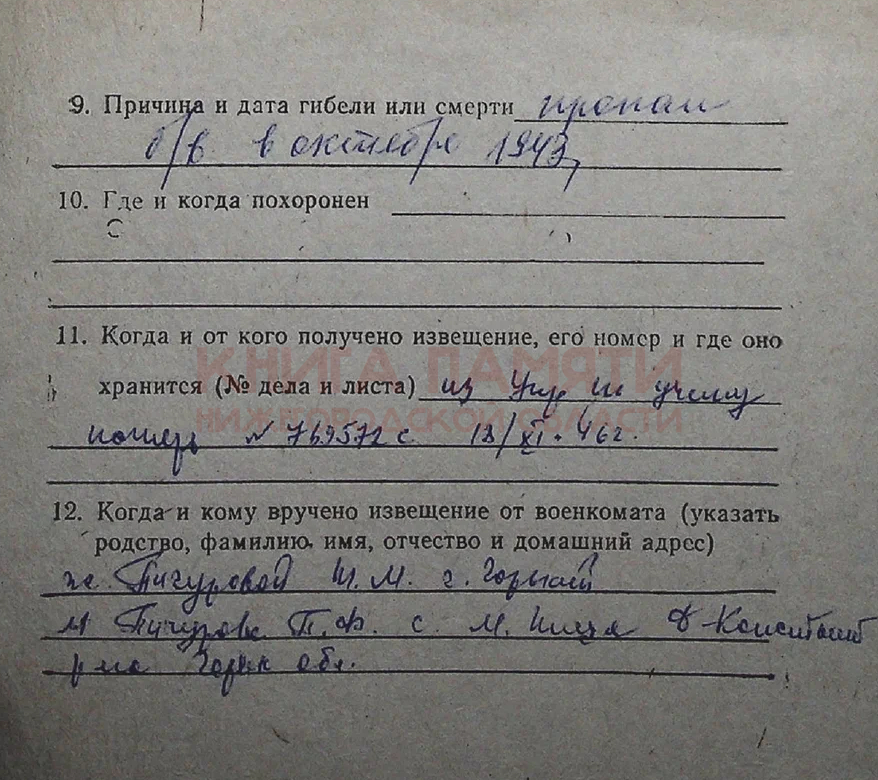 9. Причина и дата гибели или смерти пропал
б/в в октябре 1943,
10. Где и когда похоронен
11. Когда и от кого получено извещение, его номер и где оно
КНИГА ПАМЯТИ
хранится (№ дела и листа) из Упр по учету
НИЖЕГОРОДСКОЙ ОБЛАСТИ
потерь № 769572 с 18/XI. 46г.
12. Когда и кому вручено извещение от военкомата (указать
родство, фамилию, имя, отчество и домашний адрес)
ж. Пичуровой М. г. Горький
м Пичурова П. Ф. с. М. Д-Констант
р-на Горьк обл.